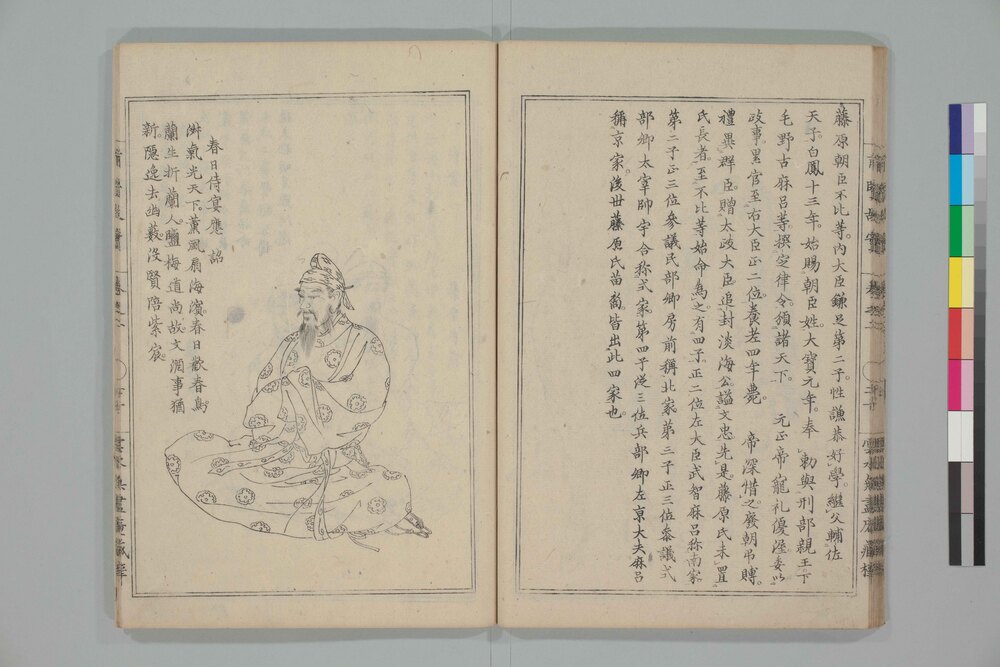 藤原朝臣不比等。内大臣鎌足第二子。性謙恭好學。繼父輔佐
天子。白鳳十三年。始賜朝臣姓。大寶元年。奉 勅與刑部親王下
毛野古麻呂等。撰定律令。頒諸天下。 元正帝寵礼優渥。委以
政事。累官至右大臣正二位。養老四年薨。 帝深惜之。廢朝弔賻。
禮異群臣。贈太政大臣。追封淡海公。謚文忠。先是。藤原氏未置
氏長者。至不比等始命焉。之有四子。正二位左大臣武智麻呂称南家。
第二子正三位參議民部卿房前稱北家。第三子正三位參議式
部卿太宰帥宇合称式家。第四子從三位兵部卿左京大夫麻呂
稱京家。後世藤原氏苗裔。皆出此四家也。
春日侍宴應 詔
淑氣光天下。薫風扇海濱。春日歡春鳥。
蘭生折蘭人。鹽梅道尚故。文酒事猶
新。隱逸去幽藪。沒賢陪紫宸。